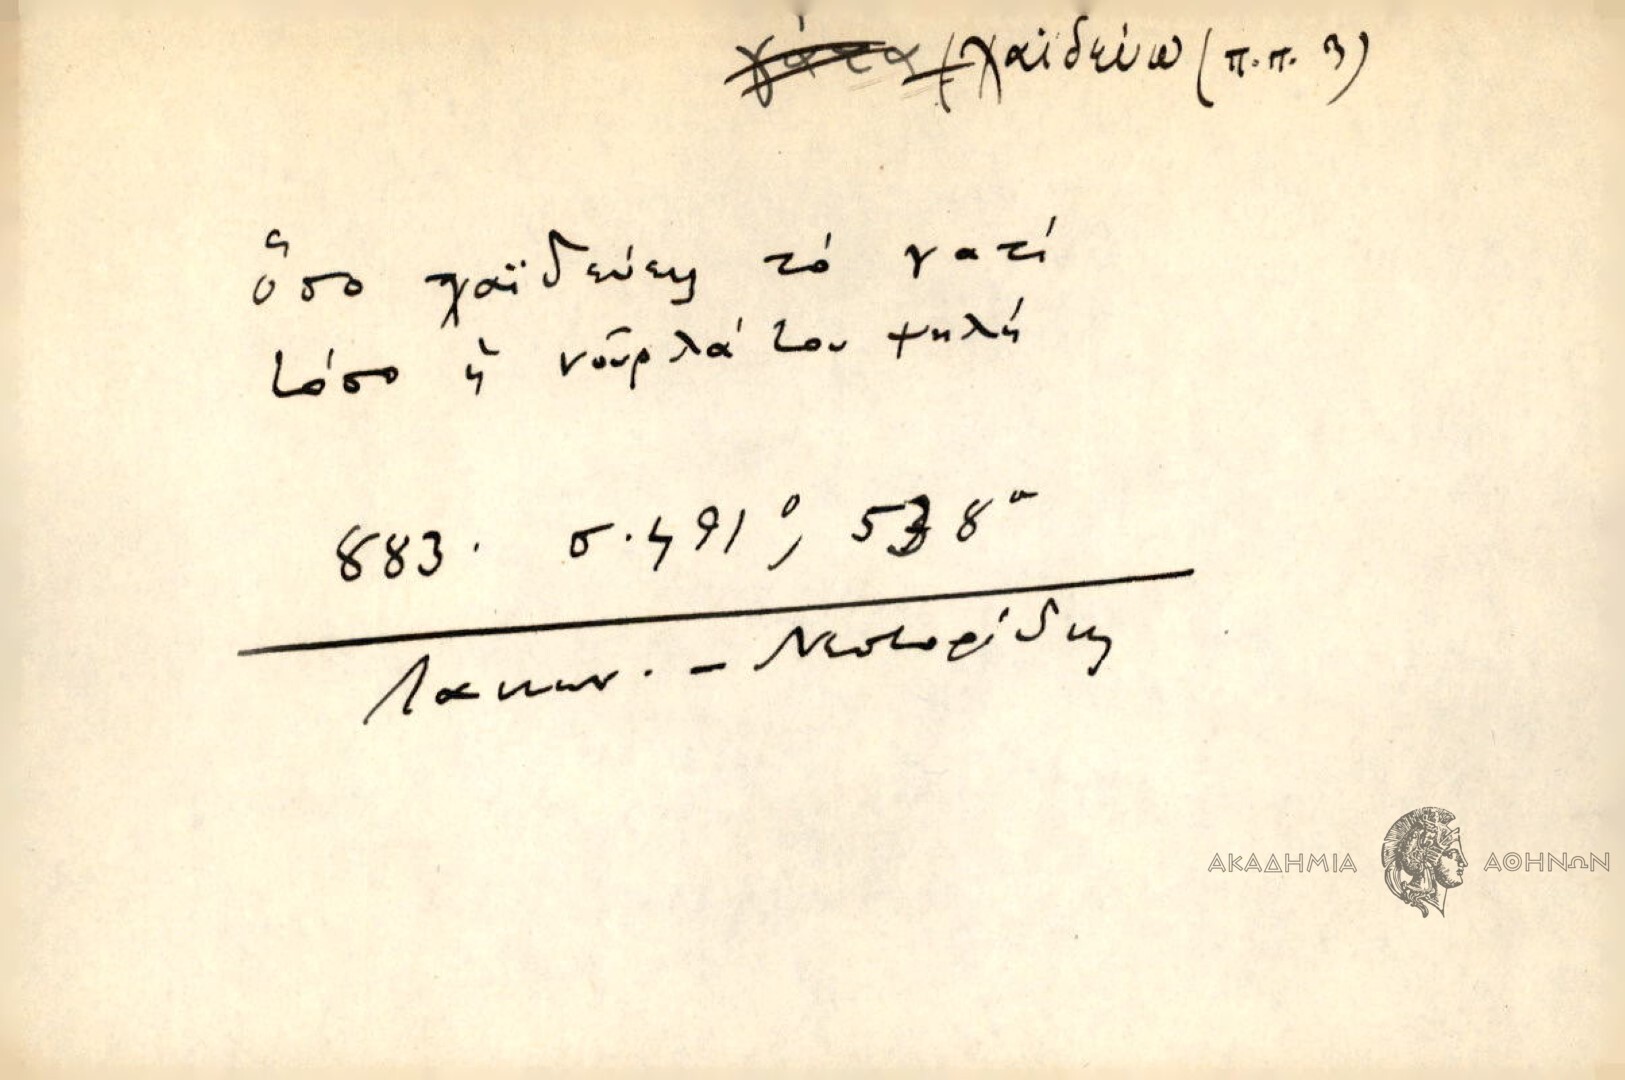 ~~γάτα~~ χαϊδεύω (π.π. 3)
ὅσο χαϊδεύεις τό γατί
τόσο ἡ νουρλά του ψηλή
883. σ. 491, 538
Λακων. - Νεστορίδης
ΑΚΑΔΗΜΙΑ ΑΘΗΝΩΝ